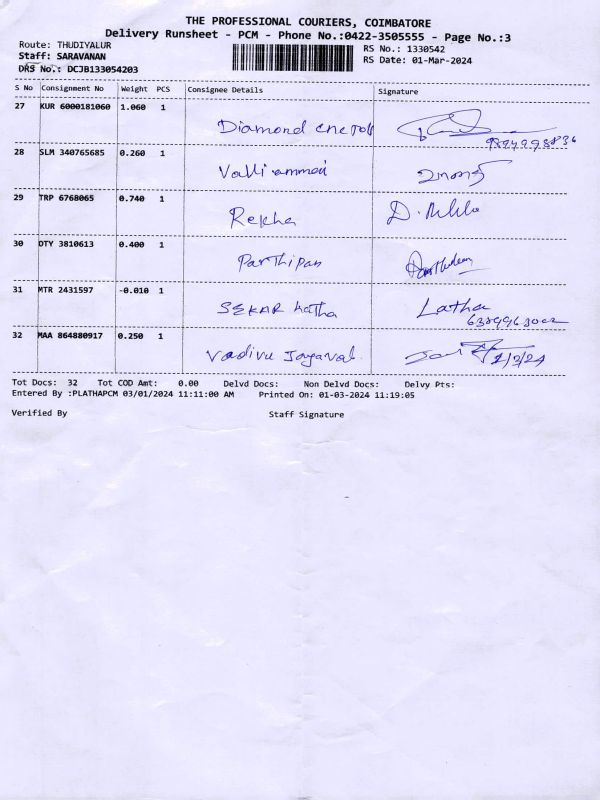 THE PROFESSIONAL COURIERS, COIMBATORE
Delivery Runsheet - PCM - Phone No.:0422-3505555 - Page No.:3
Route: THUDIYALUR
Staff: SARAVANAN
DRS No.: DCJB133054203
RS No.: 1330542
RS Date: 01-Mar-2024
S No Consignment No Weight PCS Consignee Details Signature
27 KUR 6000181060 1.060 1
Diamond
28 SLM 340765685 0.260 1
Valliammai
29 TRP 6768065 0.740 1
Rekha D.
30 DTY 3810613 0.400 1
Parthipan
31 MTR 2431597 -0.010 1
SEKAR Latha Latha
32 MAA 864880917 0.250 1
Vadivu 1/3/24
Tot Docs: 32 Tot COD Amt: 0.00 Delvd Docs: Non Delvd Docs: Delvy Pts:
Entered By :PLATHAPCM 03/01/2024 11:11:00 AM Printed On: 01-03-2024 11:19:05
Verified By Staff Signature